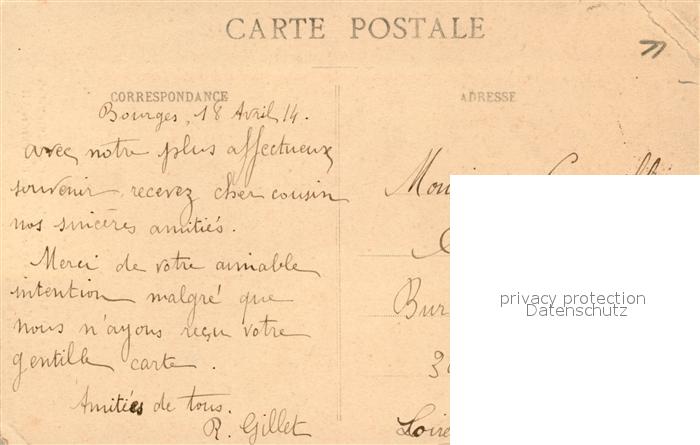 CARTE POSTALE
CORRESPONDANCE
ADRESSE
Bourges, 18 Avril 14.
avec notre plus affectueux
souvenir, recevez cher cousin
nos sincères amitiés.
Merci de votre aimable
intention malgré que
nous n'ayons reçu votre
gentille carte.
Amitiés de tous.
R. Gillet
Bur
Loire
privacy protection
Datenschutz